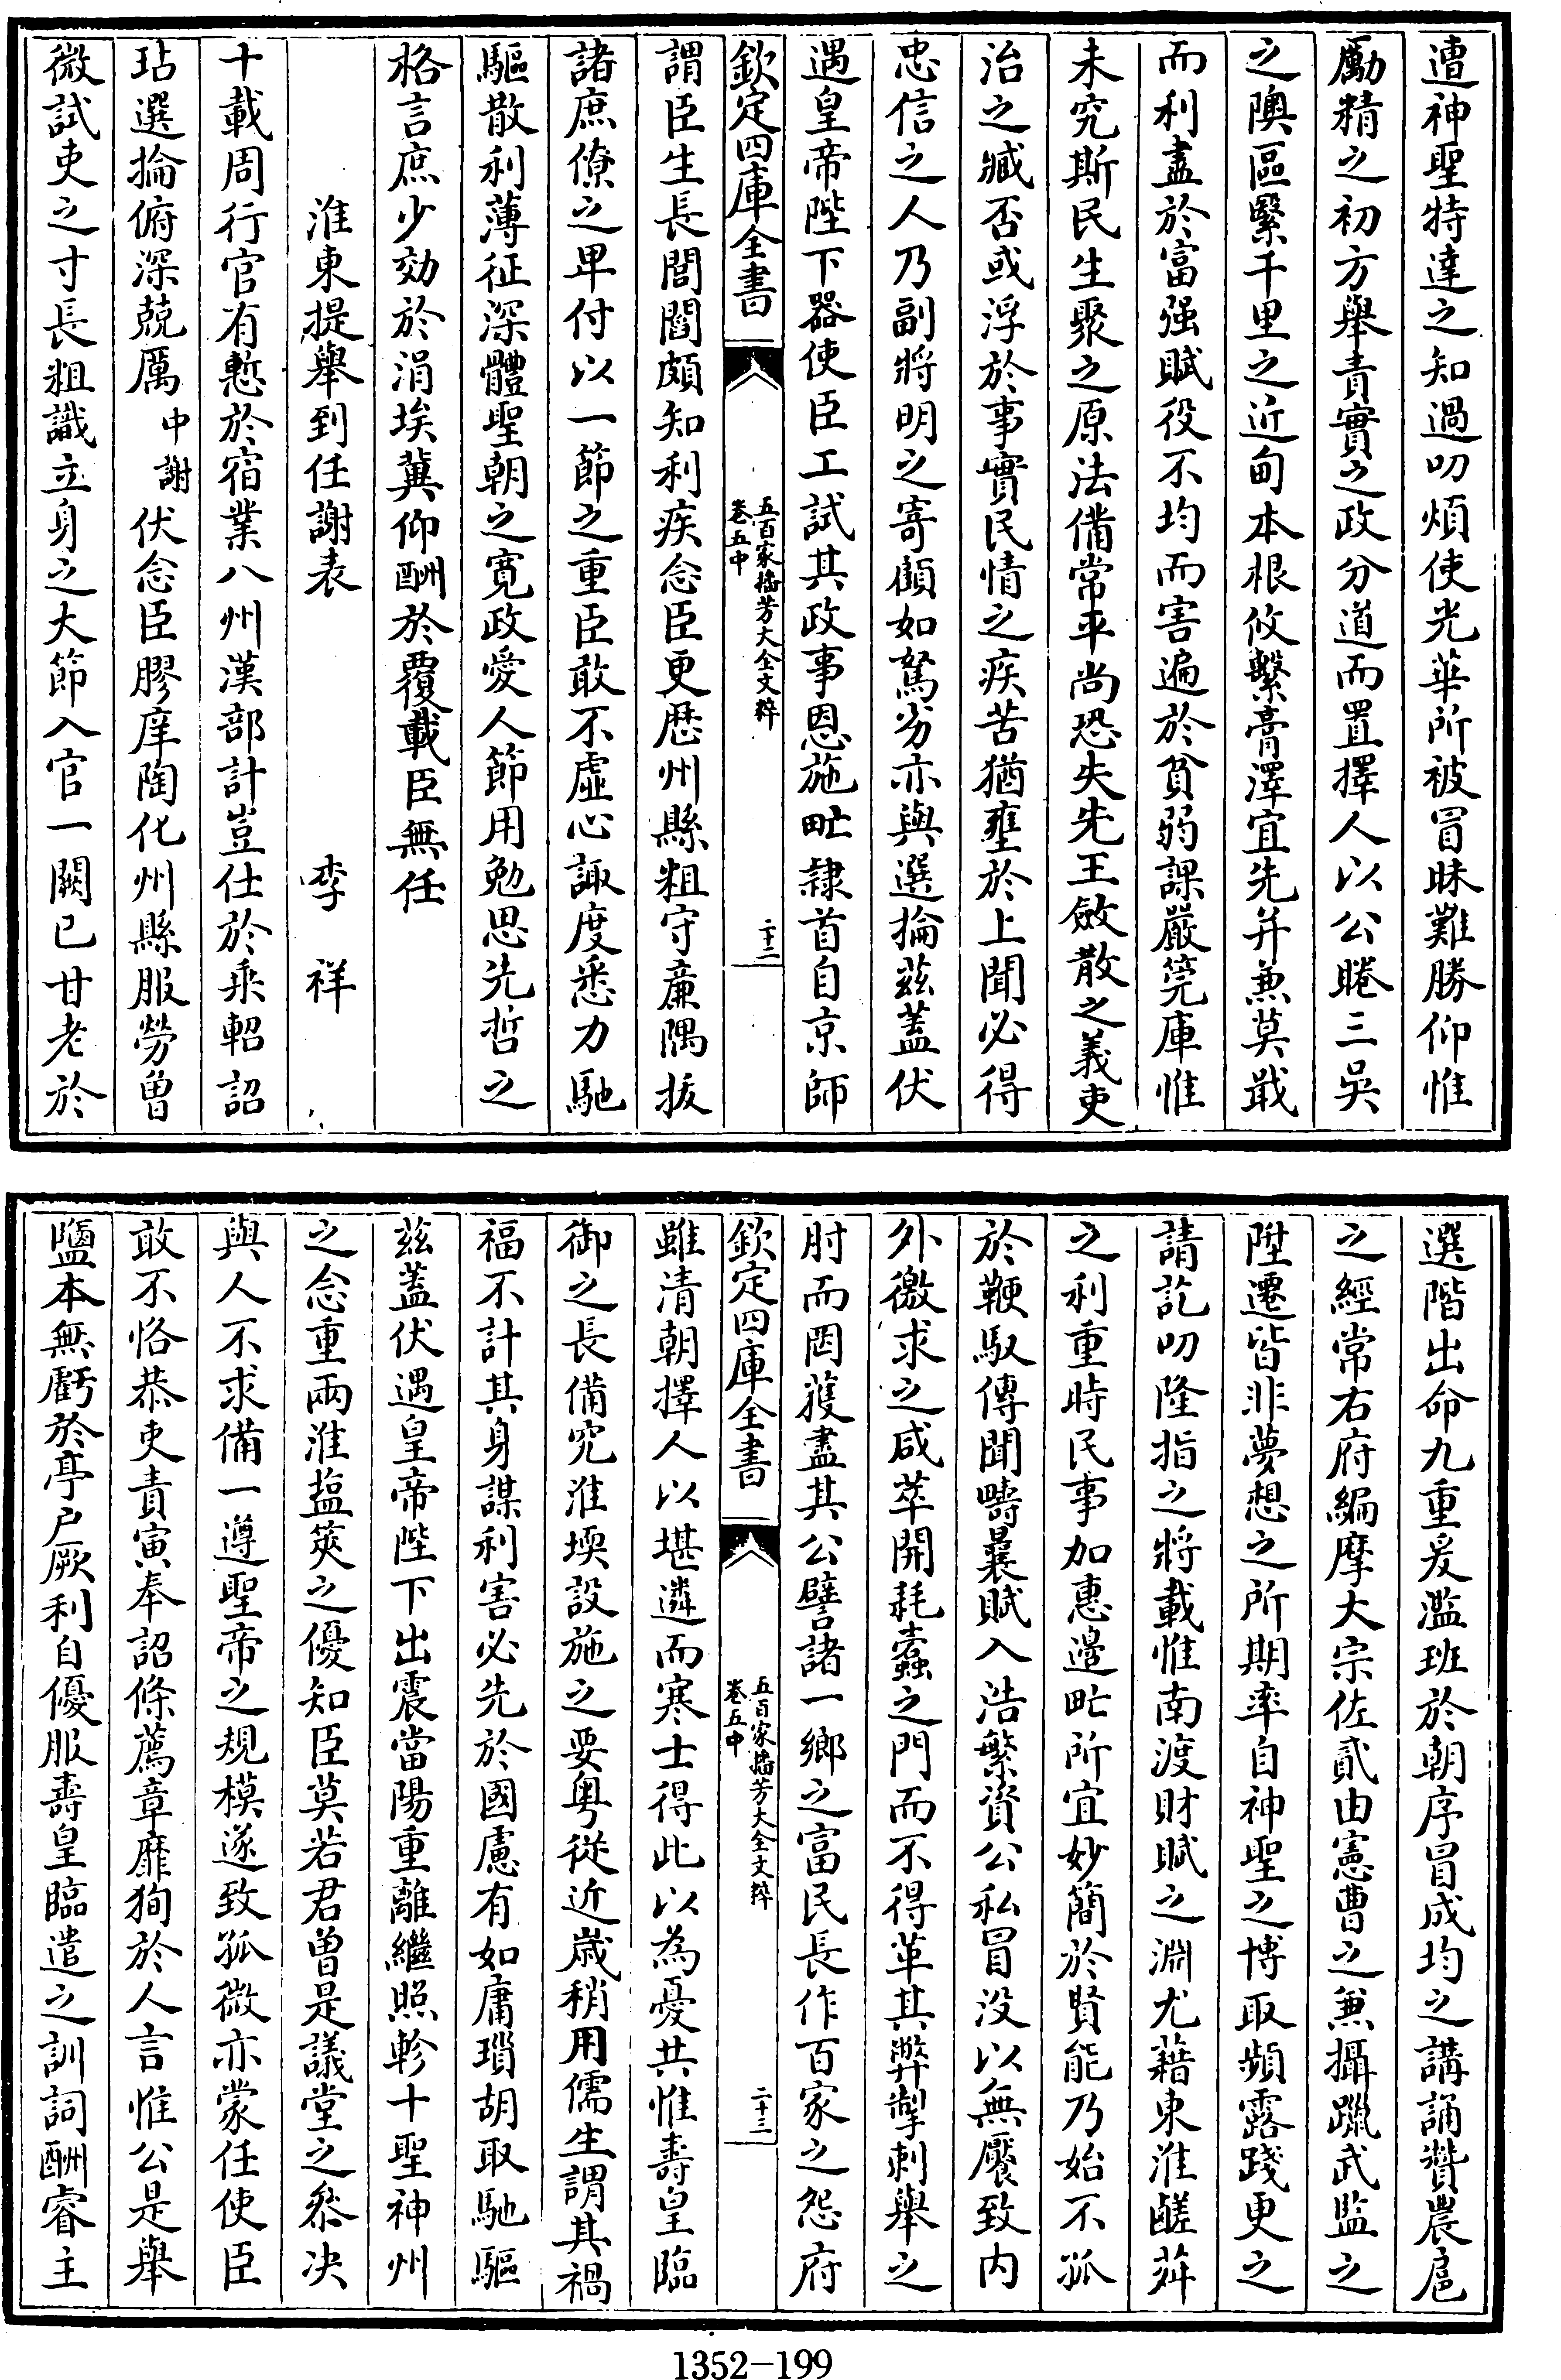 遭神聖特達之知過叨煩使光華所被冒昧難勝仰惟
勵精之初方舉責實之政分道而置擇人以公睠三吳
之隩區緊千里之近甸本根攸繫膏澤宜先并兼莫戢
而利盡於富强賦役不均而害遍於貧弱課嚴筦庫惟
未究斯民生聚之原法備常平尚恐失先王斂散之義吏
治之臧否或浮於事實民情之疾苦猶壅於上聞必得
忠信之人乃副將明之寄顧如駑劣亦與選掄兹蓋伏
遇皇帝陛下器使臣工試其政事恩施甿隷首自京師
欽定四庫全書
五百家播芳大全文粹
卷五中
二十二
謂臣生長閭閻頗知利疾念臣更歴州縣粗守廉隅拔
諸庶僚之卑付以一節之重臣敢不虚心諏度悉力馳
驅散利薄征深體聖朝之寛政愛人節用勉思先哲之
格言庶少効於涓埃冀仰酬於覆載臣無任
淮東提舉到任謝表　李　祥
十載周行官有慙於宿業八州漢部計豈仕於乘軺詔
玷選掄俯深兢厲中謝伏念臣膠庠陶化州縣服勞曽
微試吏之寸長粗識立身之大節入官一闕已甘老於
選階出命九重爰濫班於朝序冒成均之講誦贊農扈
之經常右府編摩大宗佐貳由憲曹之兼攝躐武監之
陞遷皆非夢想之所期率自神聖之博取頻露踐更之
請訖叨隆指之將載惟南渡財賦之淵尤藉東淮鹺茻
之利重時民事加惠邉甿所宜妙簡於賢能乃始不孤
於鞭馭傳聞疇曩賦入浩繁資公私冒没以無饜致内
外徼求之咸萃開耗蠧之門而不得革其弊掣刺舉之
肘而罔蒦盡其公譬諸一鄉之富民長作百家之怨府
欽定四庫全書
五百家播芳大全文粹
卷五中
二十三
雖清朝擇人以堪遴而寒士得此以為憂共惟壽皇臨
御之長備究淮堧設施之要粤從近歳稍用儒生謂其禍
福不計其身謀利害必先於國慮有如庸瑣胡取馳驅
兹蓋伏遇皇帝陛下出震當陽重離繼照軫十聖神州
之念重兩淮塩筴之優知臣莫若君曽是議堂之叅决
與人不求備一遵聖帝之規模遂致孤微亦蒙任使臣
敢不恪恭吏責寅奉詔條薦章靡狥於人言惟公是舉
鹽本無虧於亭户厥利自優服壽皇臨遣之訓詞酬睿主
1352-199